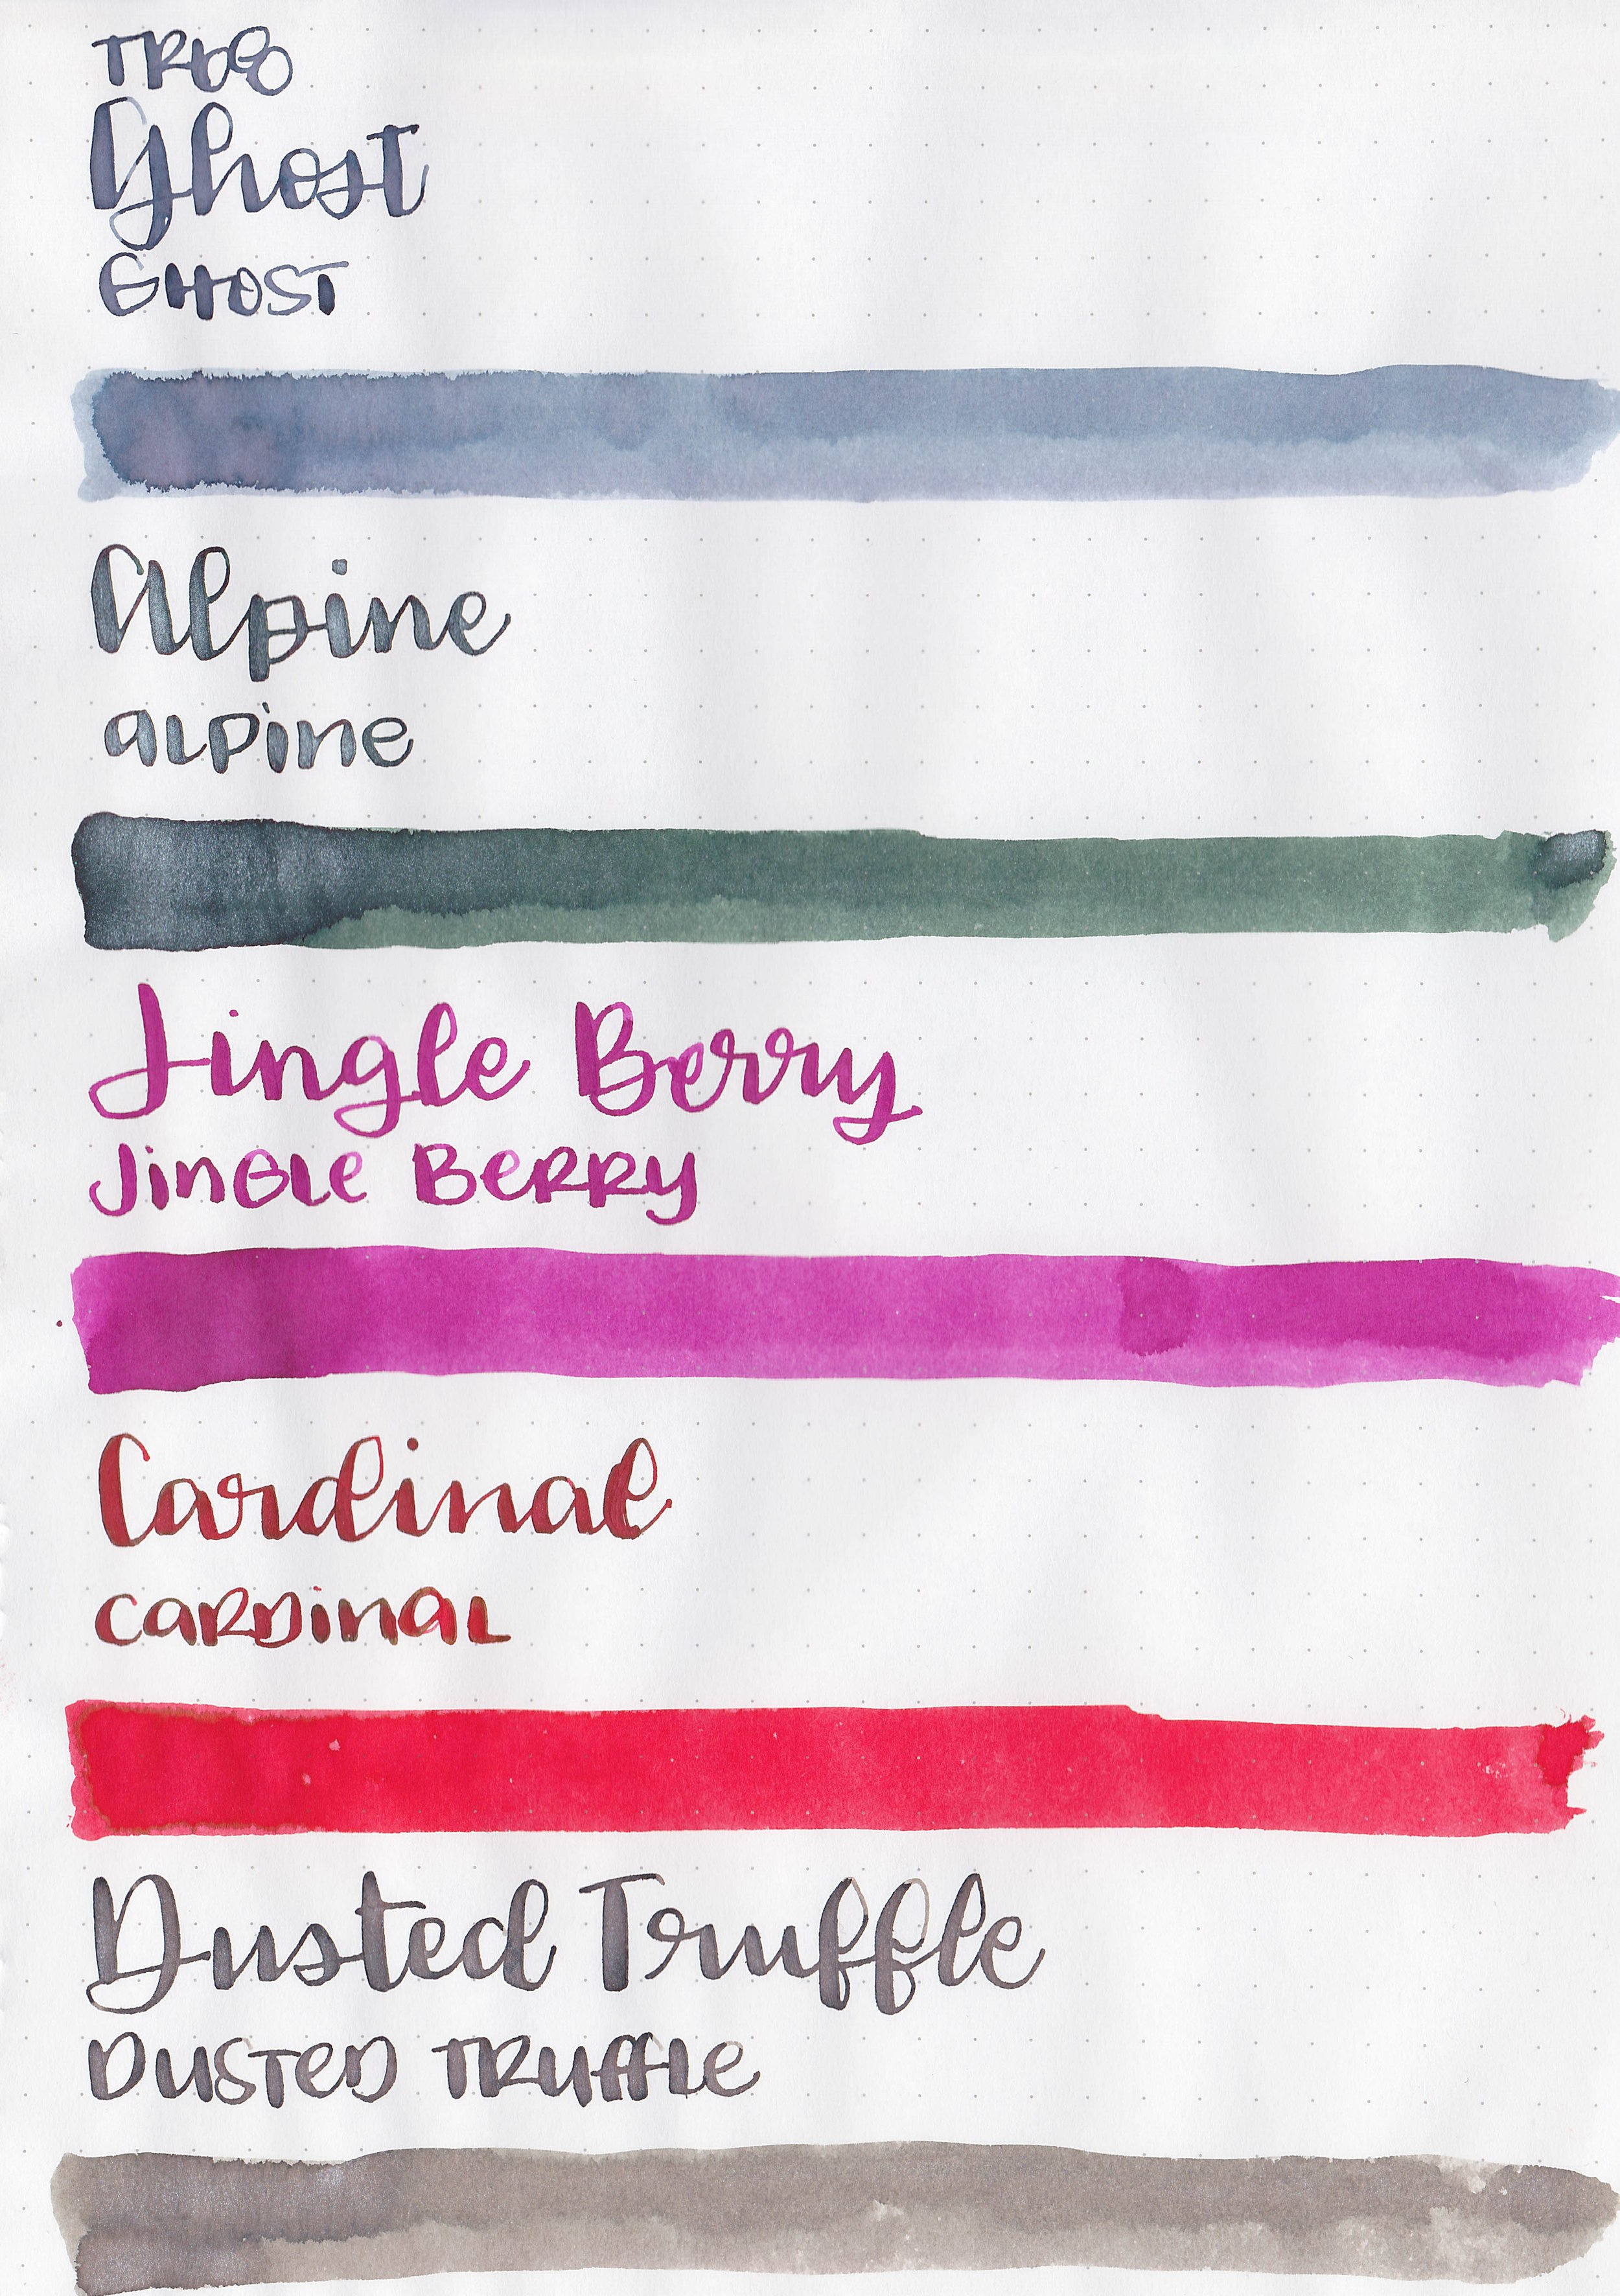 TR68
Ghost
GHOST
Alpine
aLPine
Jingle Berry
JinGLe BeRRy
Cardinal
CaRDinaL
Dusted Truffle
DUSTeD TRUffLe